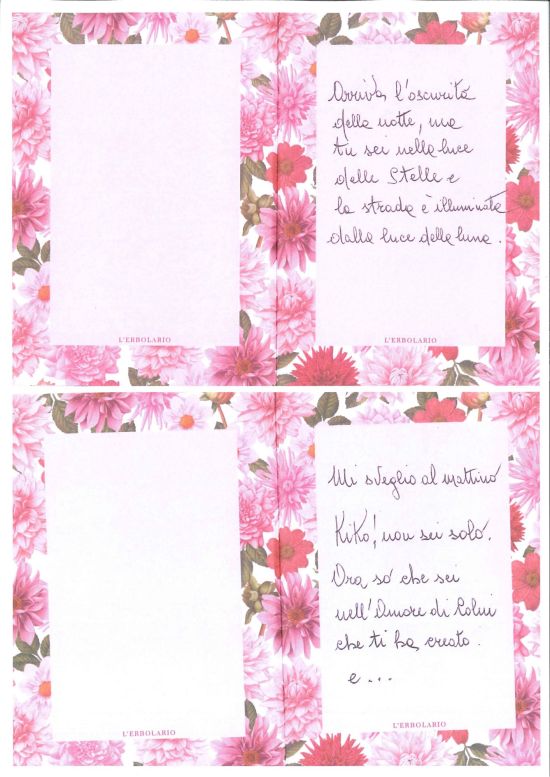 Arriva l'oscurità
della notte, ma
tu sei nella luce
delle Stelle e
la strada è illuminata
dalla luce della luna.
L'ERBOLARIO
L'ERBOLARIO
Mi sveglio al mattino
Kiko! non sei solo.
Ora sò che sei
nell'Amore di Colui
che ti ha creato.
e...
L'ERBOLARIO
L'ERBOLARIO